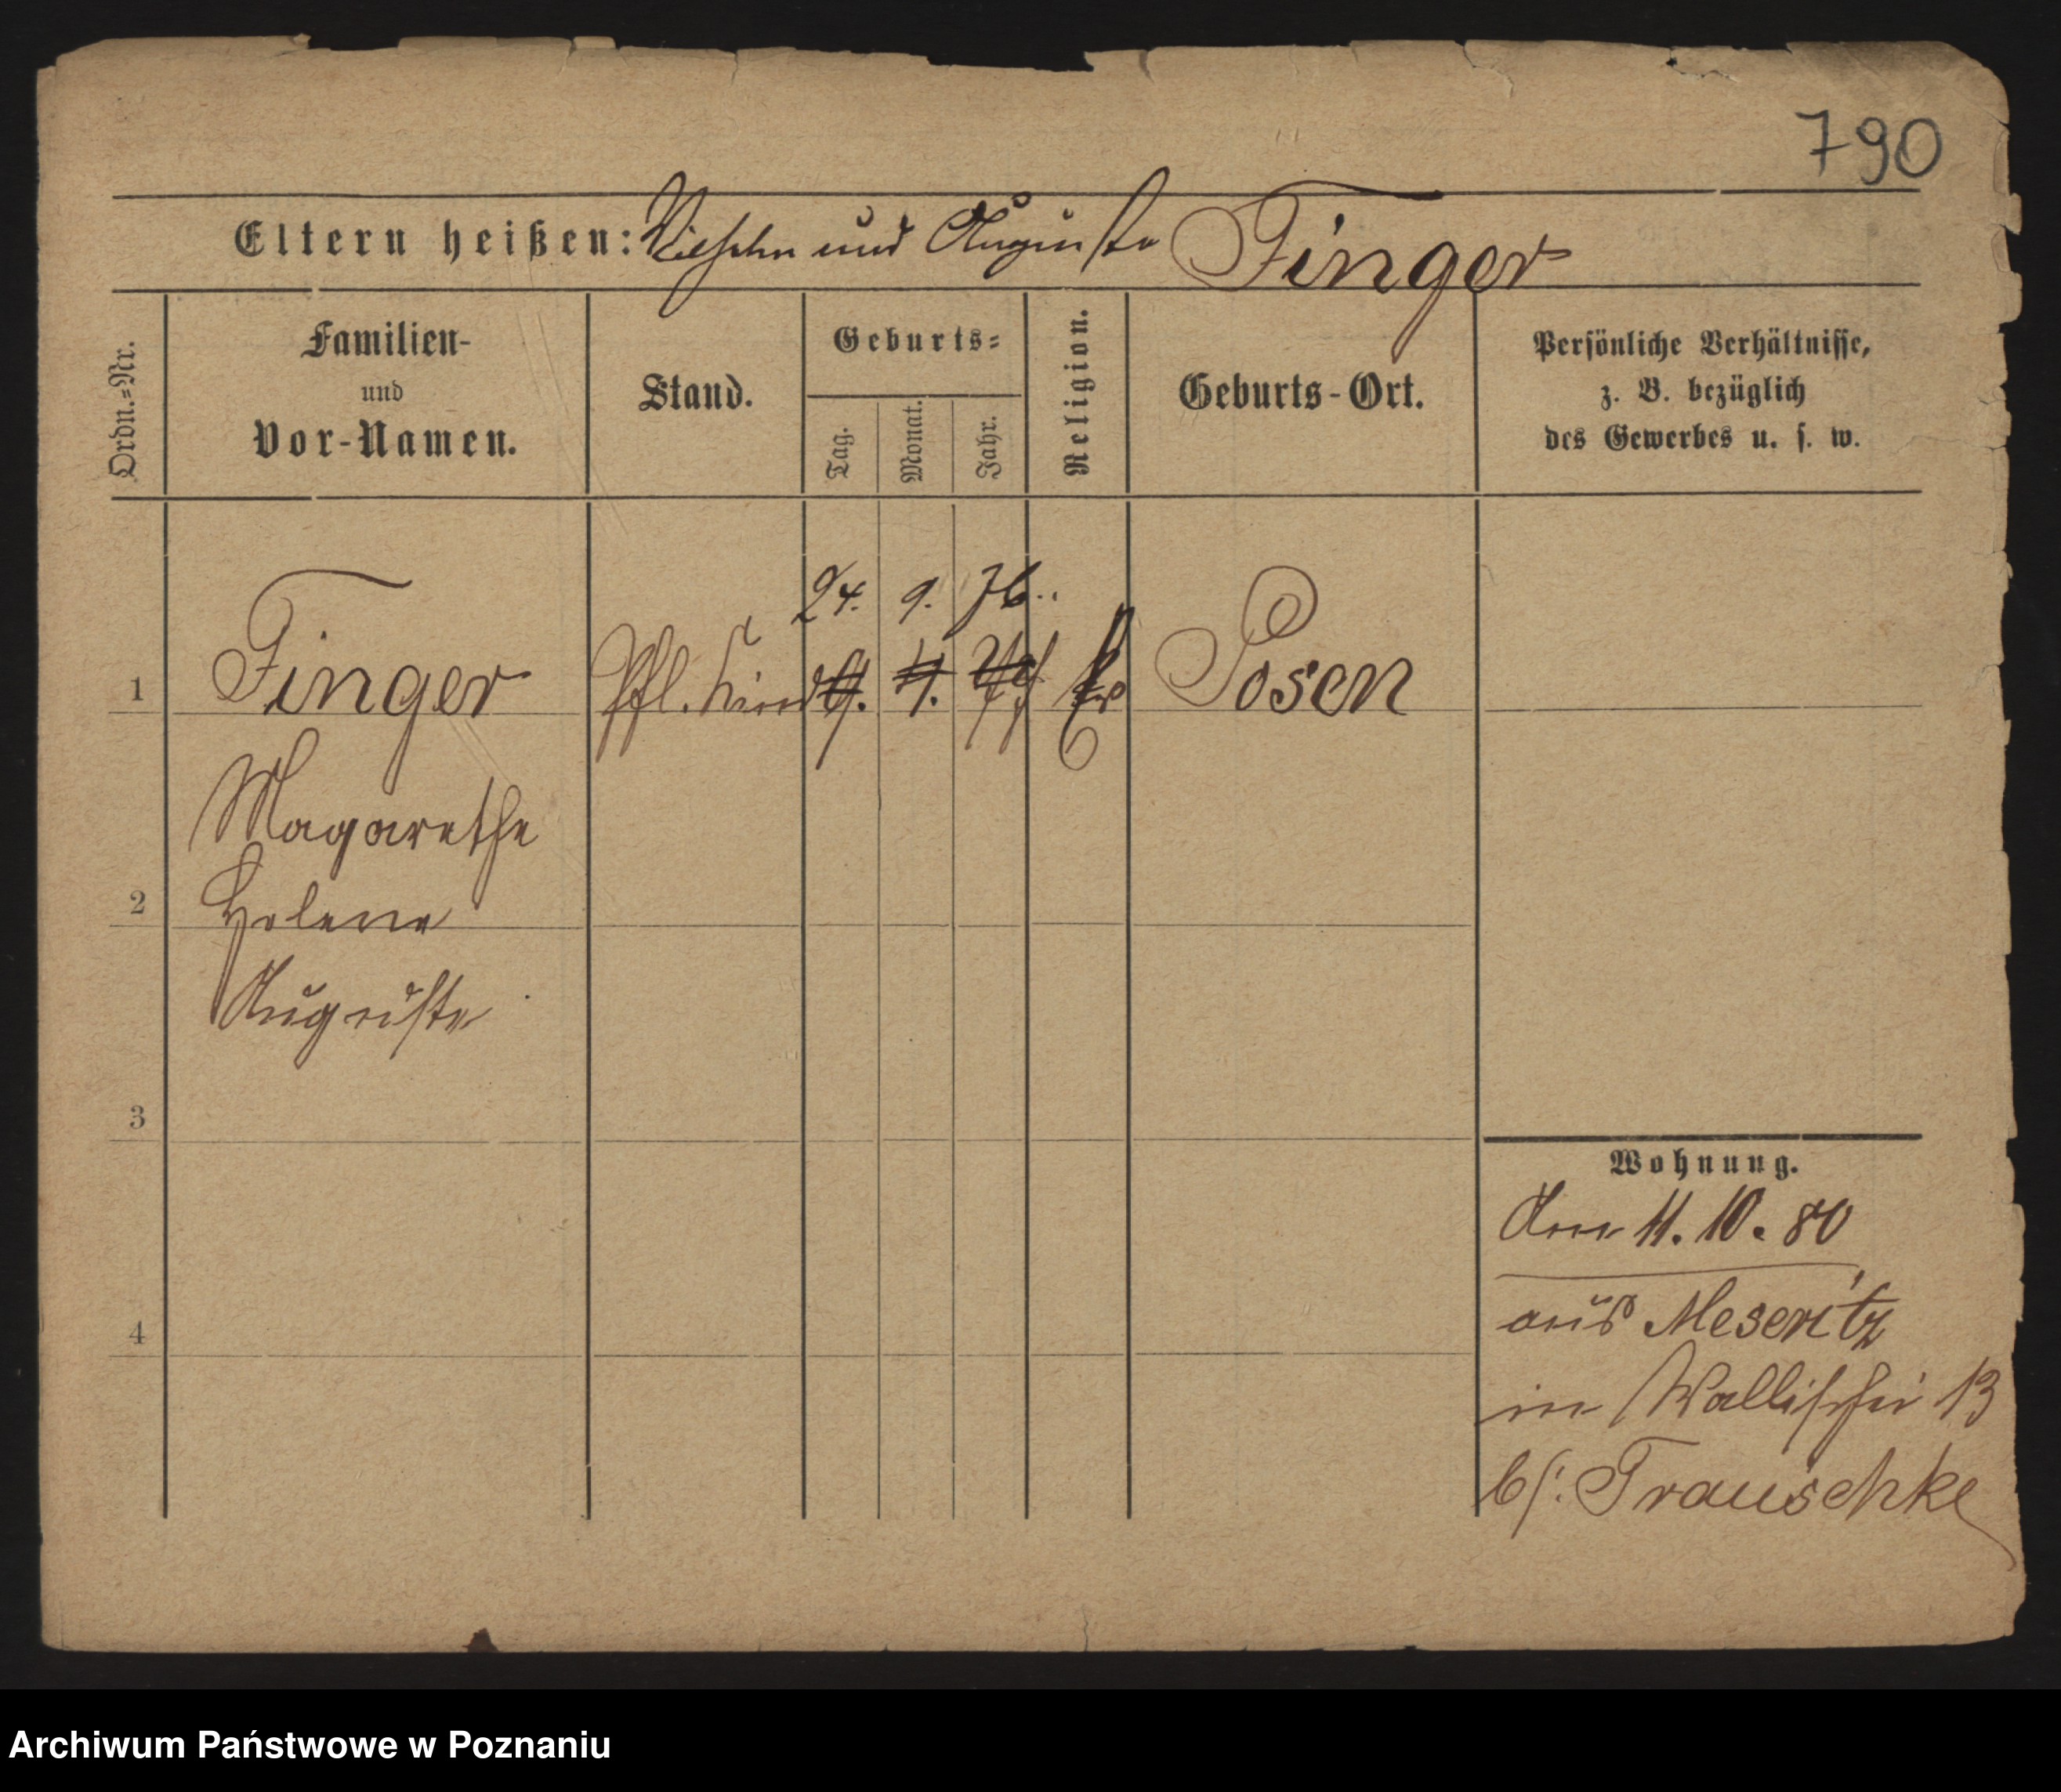 790
Eltern heißen: Wilhelm und Auguste Finger
Ordn.=Nr.
Familien-
und
Vor-Namen.
Stand.
Geburts=
Tag.
Monat.
Jahr.
Religion.
Geburts-Ort.
Persönliche Verhältnisse,
z. B. bezüglich
des Gewerbes u. s. w.
24. 9. 76.
1 Finger Pfl. Kind Posen
Magarethe
2 Helene
Auguste
3
Wohnung.
Am 11. 10. 80
aus Meseritz
4
in Wallischei 13
b/: Trauschke
Archiwum Państwowe w Poznaniu